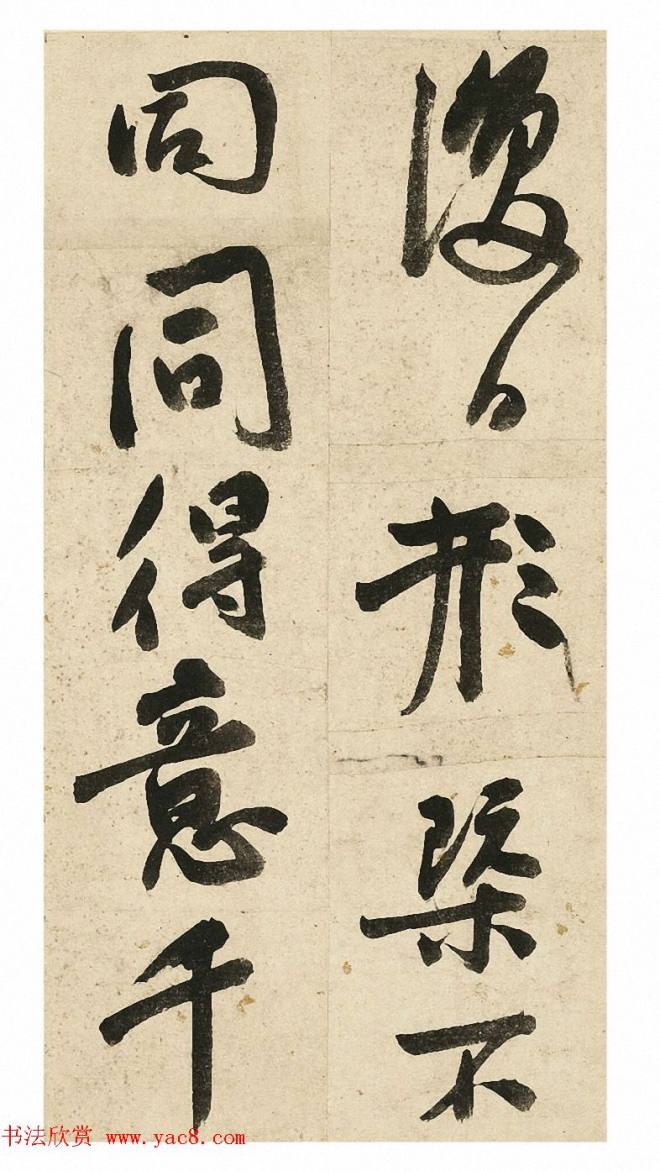 復日形槩不
同同得意千
书法欣赏 www.yac8.com